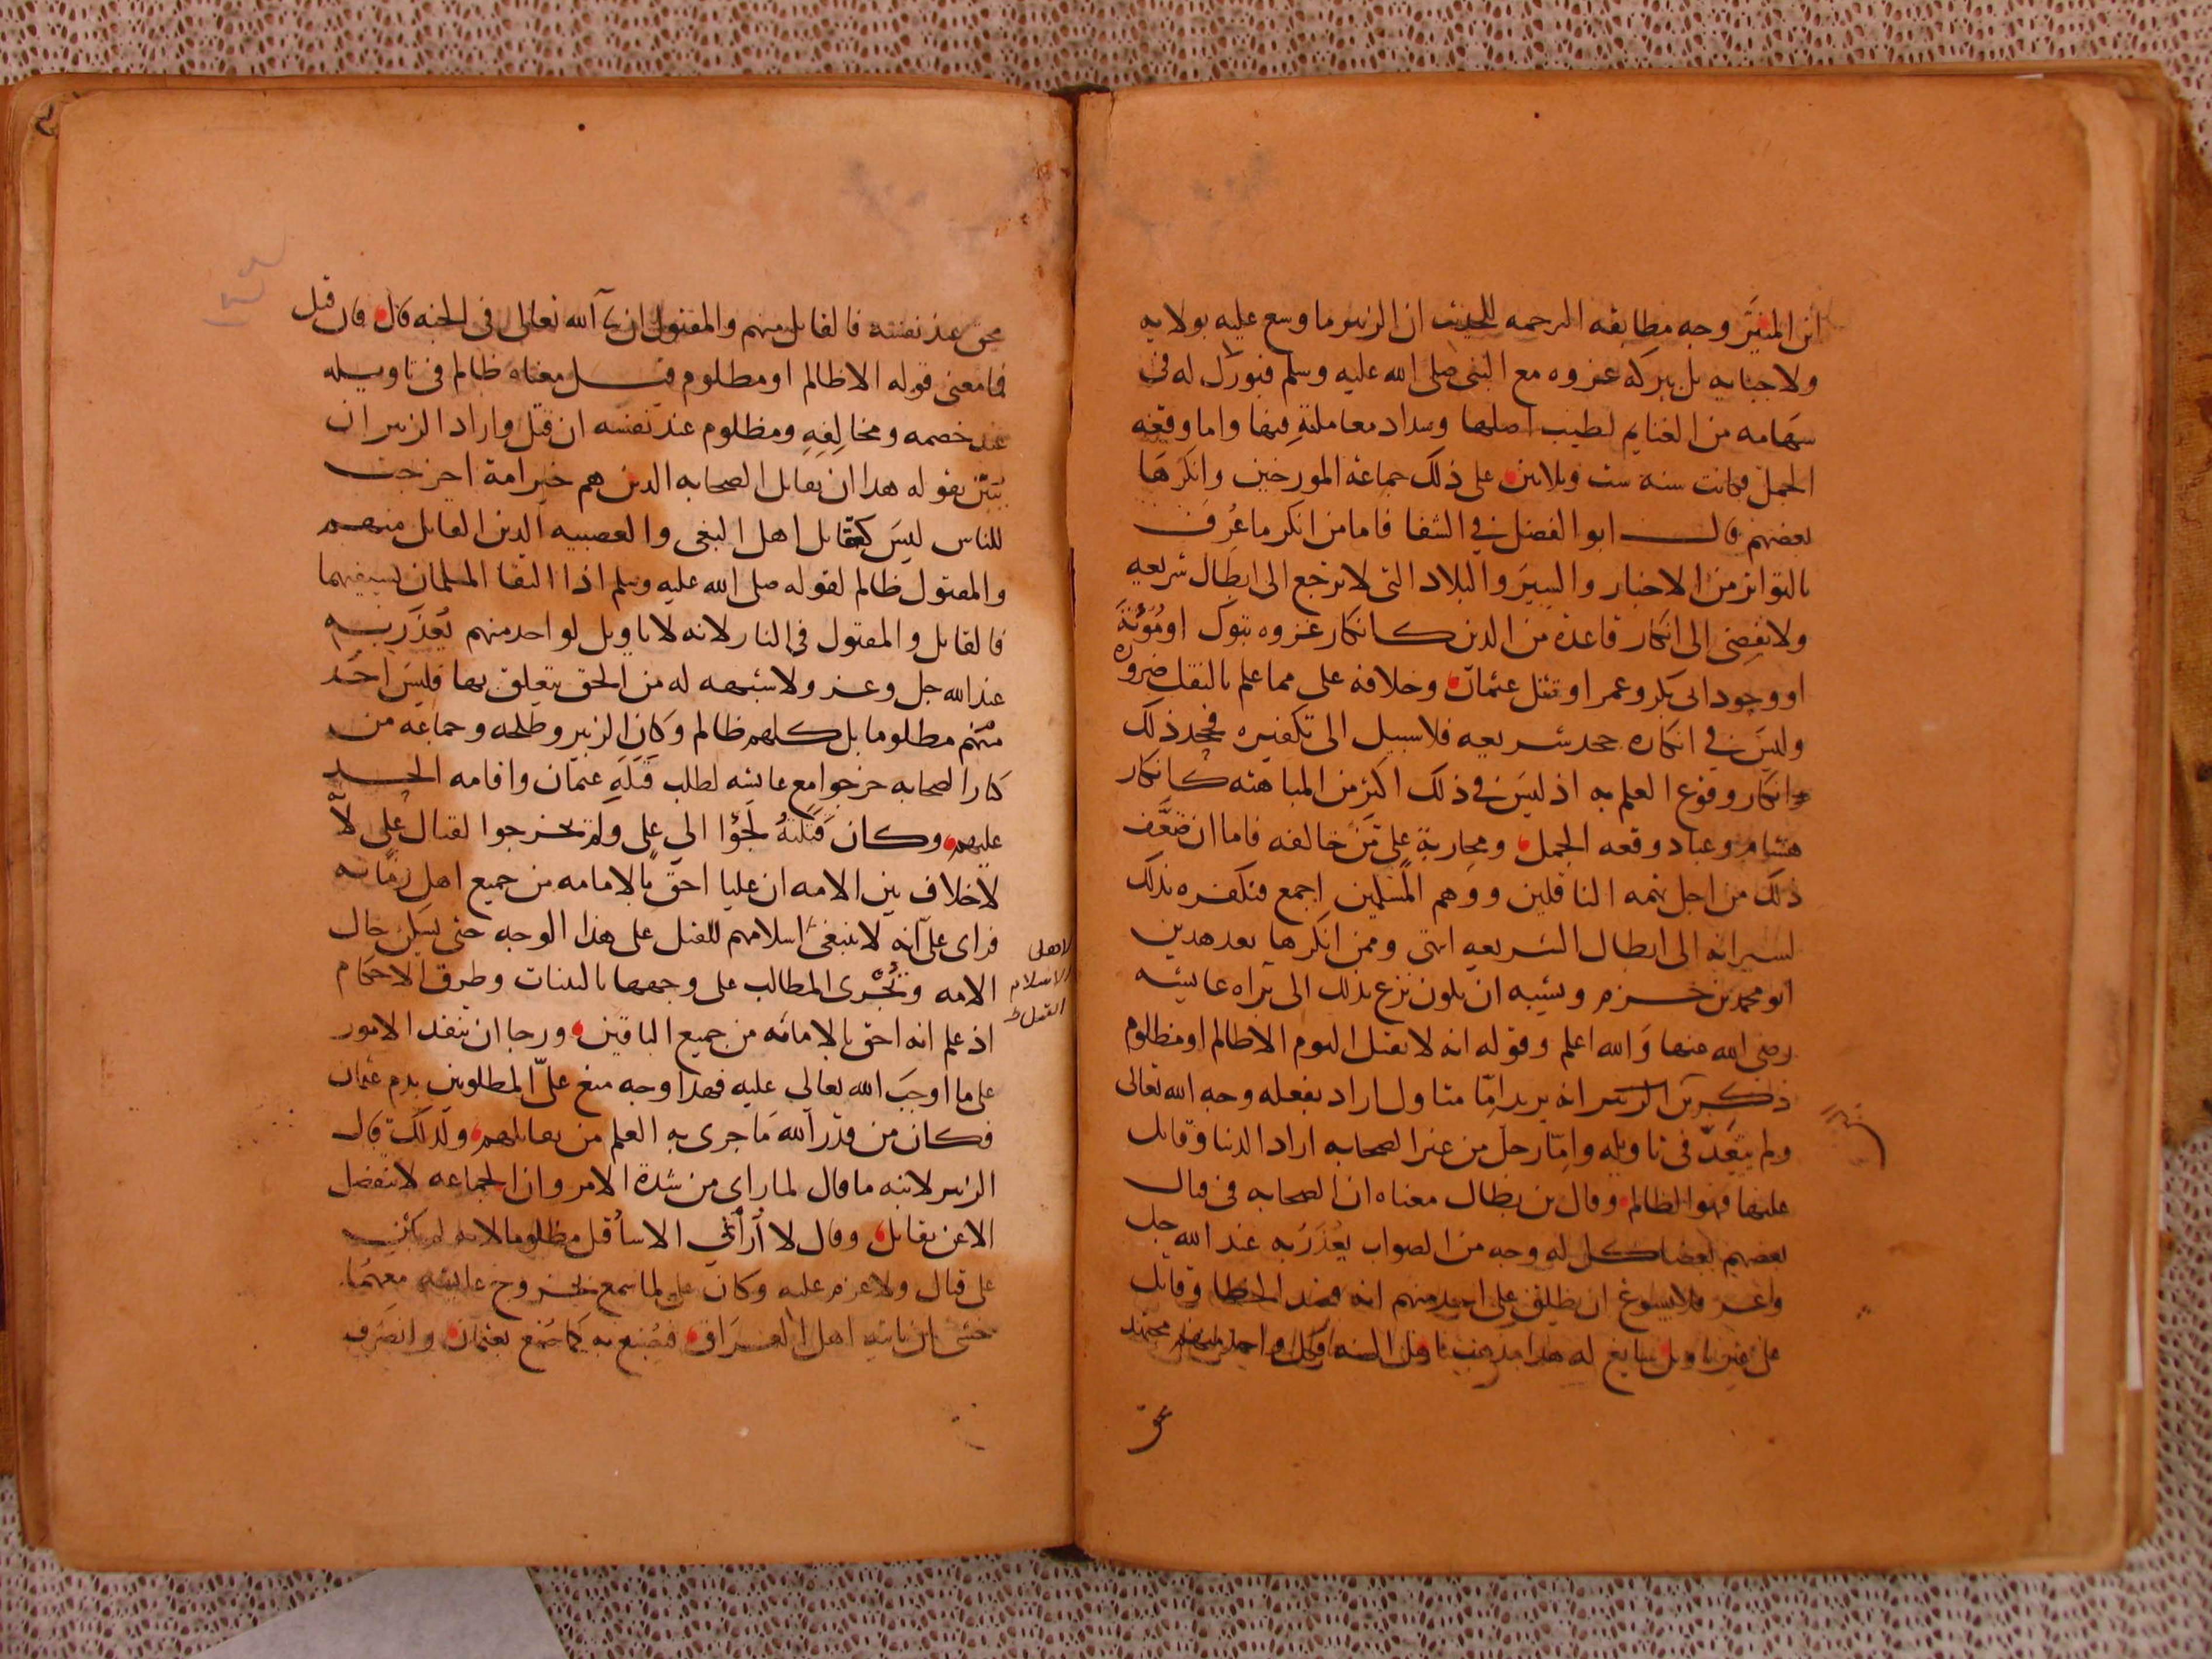 ابن المنير وجه مطابقه الترجمه للحديث ان الزبير ما وسع عليه بولايه
ولا جبايه بل ببركه غزوه مع النبي صلى الله عليه وسلم فبورك له في
سهامه من الغنايم لطيب اصلها وسداد معاملته فيها واما وقعه
الجمل فكانت سنه ست وثلاثين على ذلك جماعة المورخين وانكرها
بعضهم قال ابو الفضل في الشفا فاما من انكر ما عُرف
بالتواتر من الاخبار والسِيَر والبلاد التي لا ترجع الى ابطال شريعه
ولا تفضى الى انكار قاعدة من الدين كانكار غزوه تبوك او مُؤتَةَ
او وجود ابى بكر وعمر او قتل عثمان وخلافه على مما علم بالنقل ضروره
وليسَ في انكاره جحد شريعه فلا سبيل الى تكفيره بجحد ذلك
وانكار وقوع العلم به اذ ليسَ في ذلك اكثر من المباهته كانكار
هشام وعباد وقعه الجمل ومحاربة على من خالفه فاما ان ضعَّف
ذلك من اجل تهمه الناقلين ووهم المسلمين اجمع فنكفره بذلك
لسيرانه الى ابطال الشريعه انتهى وممن انكرها بعد هذين
ابو محمد بن حزم ويشبه ان يكون نزع بذلك الى براه عايشه
رضى الله عنها وَالله اعلم وقوله انه لا يقتل اليوم الا ظالم او مظلوم
انه يريد امّا متاول اراد بفعله وجه الله تعالى
ولم يتعدّ في تاويله وامّا رجل من غير الصحابه اراد الدنيا وقاتل
عليها فهو الظالم وقال بن بطال معناه ان الصحابه في قتال
بعضهم بعضا كل له وجه من الصواب يُعذرُ به عند الله جل
وعز فلا يسوغ ان يطلق على احد منهم انه قصد الخطا وقاتل
على غير تاويل سايغ له هذا مذهب اهل السنه وكل واحد منهم مجتهد
محق عند نفسه فالقاتل منهم والمقتول ان شا الله تعالى في الجنه قال فان قيل
فما معنى قوله الا ظالم او مظلوم قيل معناه ظالم في تاويله
عند خصمه ومخالِفِهِ ومظلوم عند نفسه ان قتل واراد الزبير ان
يُبَيّن بقوله هذا ان تقاتل الصحابه الذين هم خير امة اخرجت
للناس ليسَ كتقاتل اهل البغى والعصبيه الذين القاتل منهم
والمقتول ظالم لقوله صلى الله عليه وسلم اذا التقا المسلمان بسيفيهما
فالقاتل والمقتول في النار لانه لا تاويل لواحد منهم يُعذَر به
عند الله جل وعز ولا شبهه له من الحق يتعلق بها فليسَ احَد
منهم مظلوما بل كلهم ظالم وكان الزبير وطلحه وجماعه من
كبار الصحابه خرجوا مع عايشه لطلب قَتلَةِ عثمان واقامه الحد
عليهم وكان قَتَلتهُ لجؤا الى على ولم يخرجوا لقتال على لأنّه
لا خلاف بين الامه ان عليا احق بالامامه من جميع اهل زمانه
فراى على انه لا ينبغى اسلامهم للقتل على هذا الوجه حتى يسكن حال
الامه وتُجْرى المطالب على وجهها بالبينات وطرق الاحكام
لاهل
الاسلام
القتل
اذ علم انه احق بالامامه من جميع الباقين ورجا ان ينفذ الامور
على ما اوجبَ الله تعالى عليه فهذا وجه منع علىّ المطلوبين بدم عثمان
فكان من قدر الله ما جرى به القلم من تقاتلهم ولذلك قال
الزبير لابنه ما قال لما راى من شدة الامر وان الجماعه لا تنفصل
الا عن تقاتل وقال لا اُرانى الا سأُقتل مظلوما لانه لم يكن
على قتال ولا عزم عليه وكان على لما سمع بخروج عايشه معهما
خشى ان ياتيه اهل العراق فيُصنع به كما صُنع بعثمان وانصرف